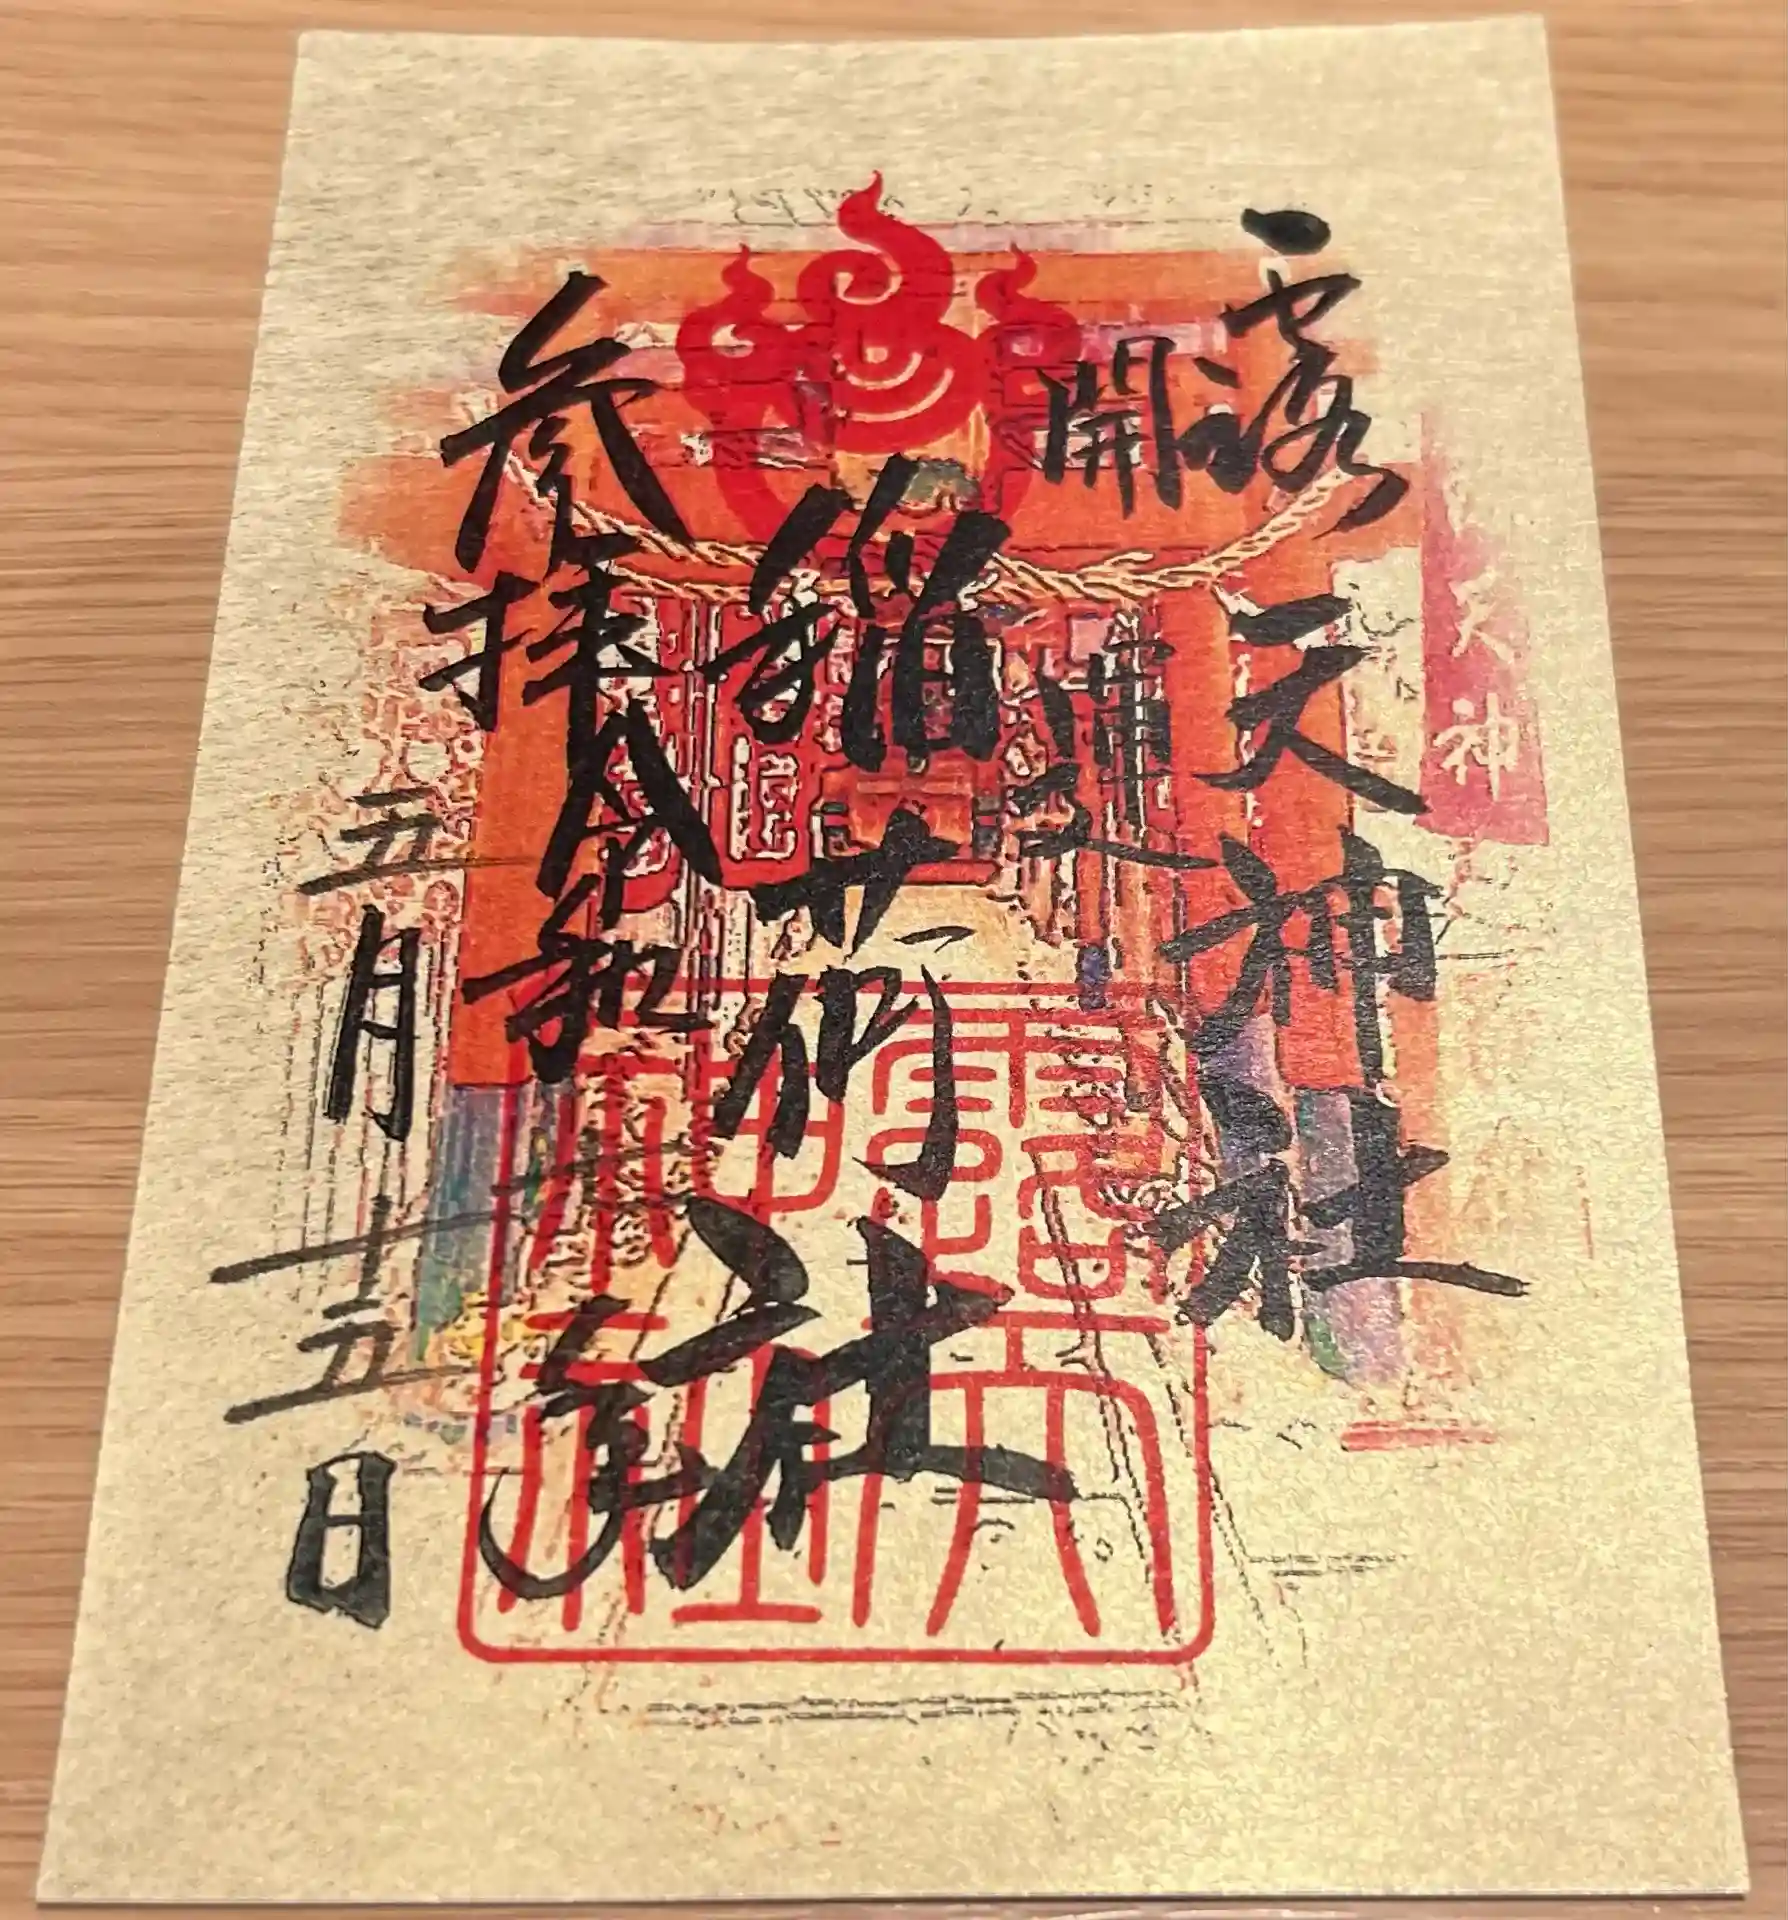 天神
露天神社
開運
稲荷社
参拝
令和年
五月十五日
露天
神社